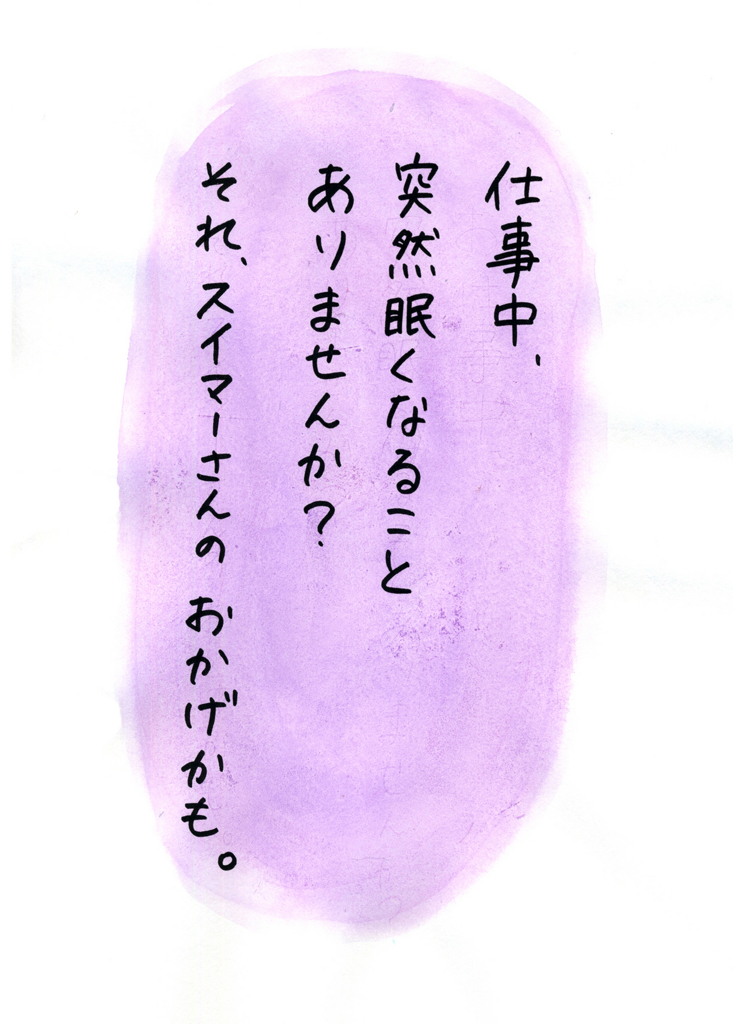 仕事中、
突然眠くなること
ありませんか?
それ、スイマーさんの おかげかも。